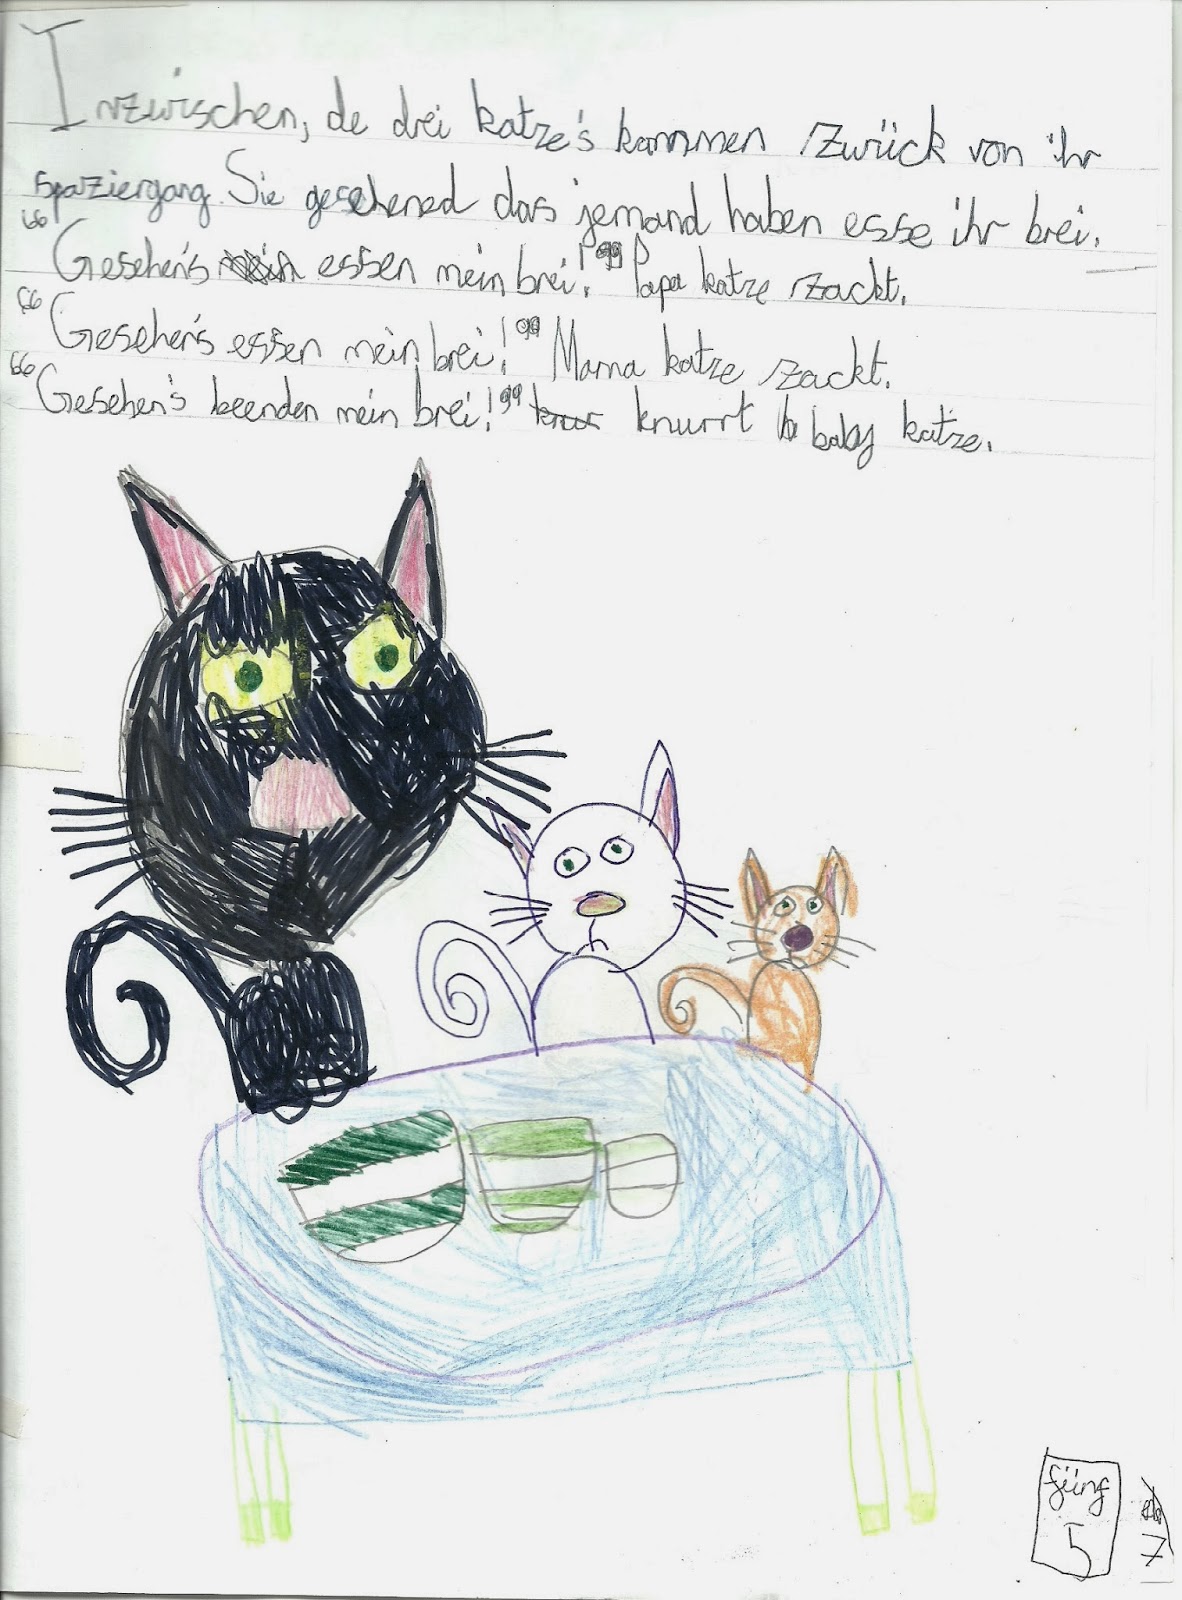 Inzwischen, de drei katze's kommen zurück von ihr
spaziergang. Sie gesehened das jemand haben esse ihr brei.
"Gesehen's essen mein brei!" Papa katze zackt.
"Gesehen's essen mein brei!" Mama katze zackt.
"Gesehen's beenden mein brei!" knurrt baby katze.
fünf
5
7